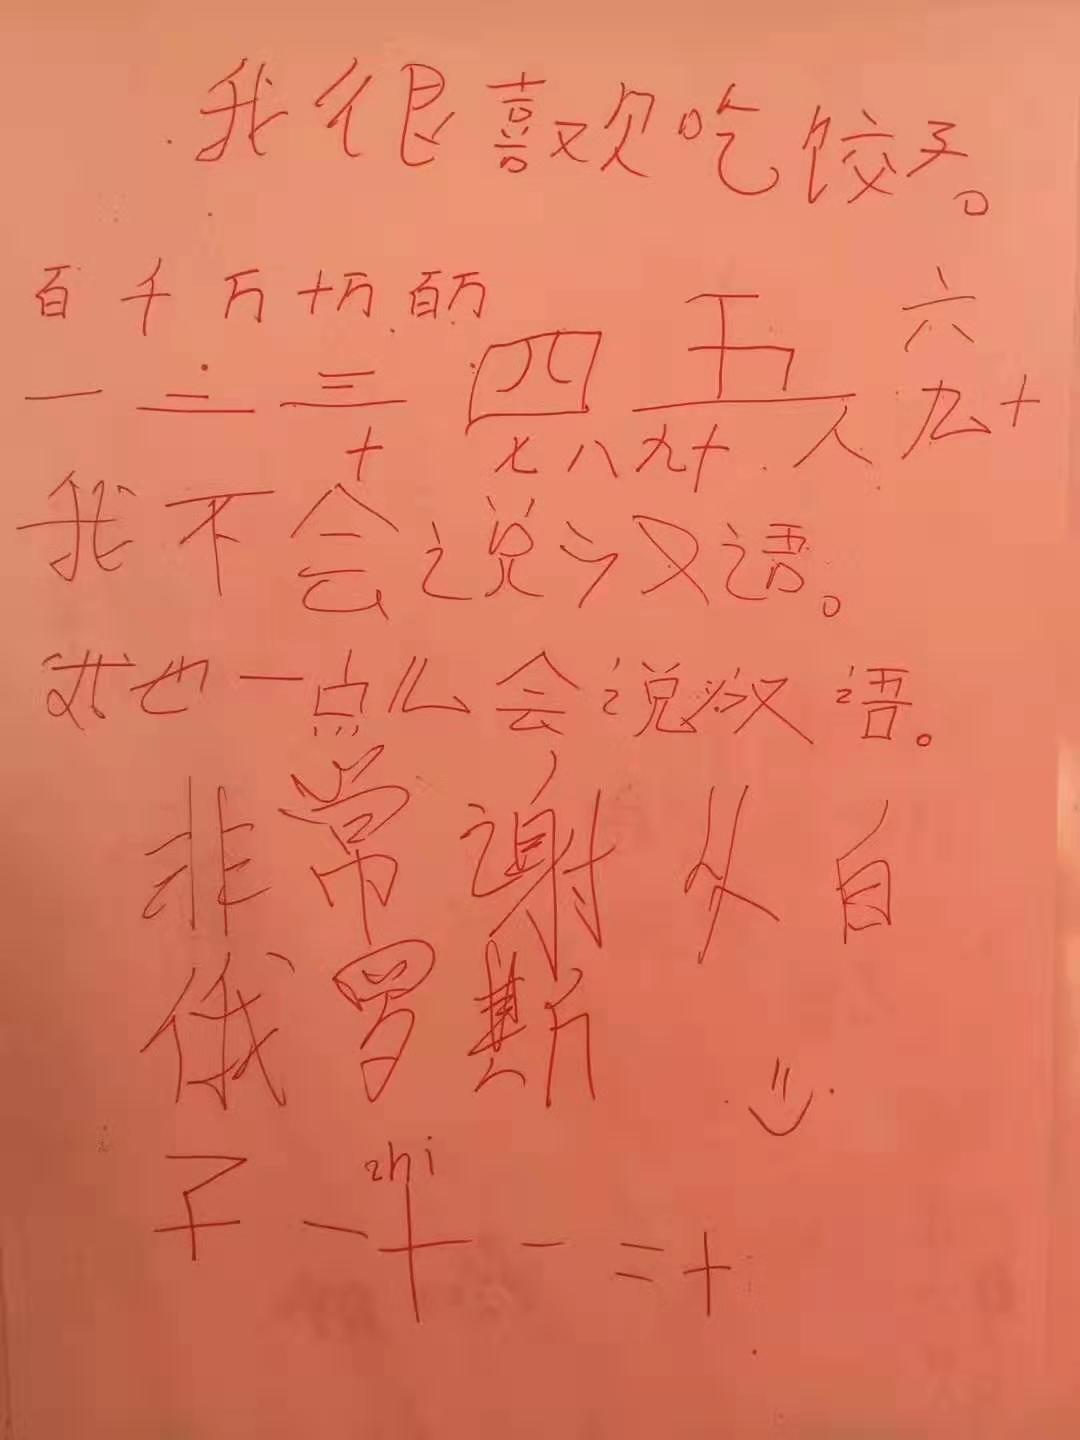 我很喜欢吃饺子。
百 千 万 十万 百万
一 二 三 四 五 六
十 七 八 九 十 人 九 十
我不会说汉语。
我也一点么会说汉语。
非常谢从自
俄罗斯
zhi
子 一 十 一 二 十